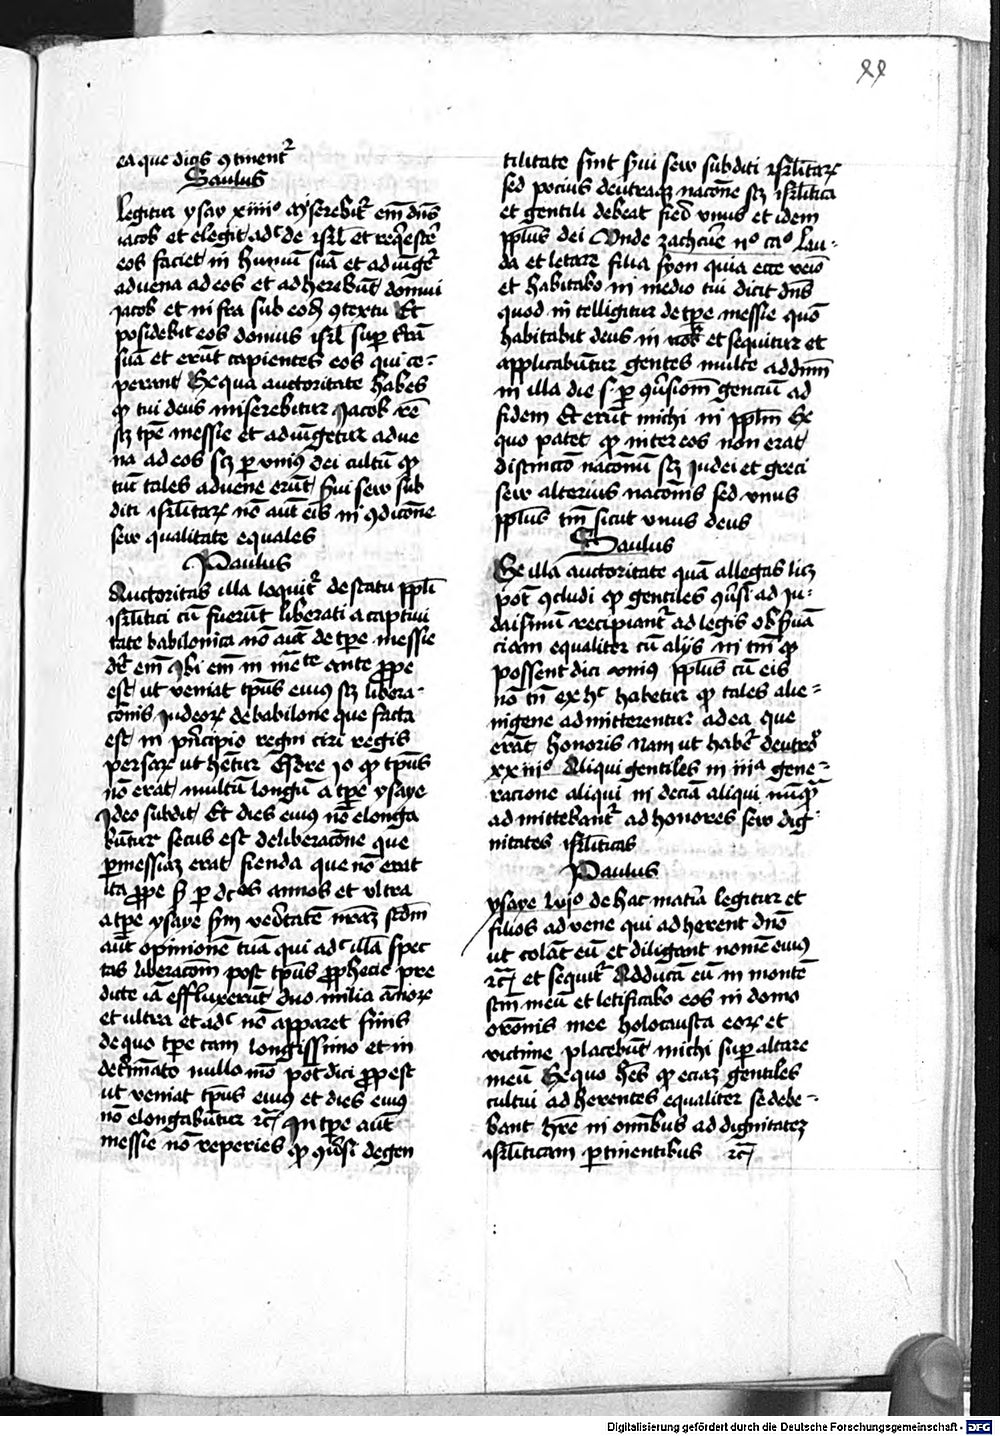 ea que dicis ꝯtinentᷣ
Saulus
Legitur ysay xiiiiᵒ Miserebitᷣ em̄ dn̄s
iacob et elegit adᶜ de isrl̄ et reqꝫescē
eos faciet in humū suā et adiūgetᷣ
advena ad eos et adherebūt domui
iacob et infra sub eodē ꝯtextu Et
posidebit eos domus isrl̄ suꝑ trā
suā et erūt capientes eos qui ce⸗
perant Ex qua auctoritate habes
ꝙ tui deus miserebitur Jacob
scꝫ tꝑe messie et adiūgetur adve
na ad eos scꝫ ꝑ vniꝰ dei cultū ꝙ
tn̄ tales advene erūt ẜui sew sub
diti isrl̄itaꝝ nō aūt eis in ꝯdicōne
sew qualitate equales
Paulus
Auctoritas illa loquitᷣ de statu ppl̄i
isrl̄itici cū fuerūt liberati a captivi
tate babilonica nō aūt de tꝑe messie
dr̄ em̄ ibi em̄ in ante ꝓpe
est ut veniat tꝑus eiuꝰ scꝫ libera⸗
cōnis iudeoꝝ de babilone que facta
est in pͥncipio regni ciri regis
persaꝝ ut hētur Esdre Iᵒ ꝙ tꝑus
nō erat multū longū a tꝑe ysaye
Ideo subdit Et dies eiuꝰ nō elonga
būtur secus est de liberacōne que
ꝑ messiaꝫ erat fienda que nō erat
ita ꝓpe ẜ ꝑ annos et ultra
a tꝑe ysaye ẜm veritatē nr̄aꝫ scd̄m
aūt opinionē tuā qui adᶜ illā spec
tas liberacōem post tꝑus ꝓphecie pre
dicte iā effluxerūt duo milia ānoꝝ
et ultra et adᶜ nō apparet finis
de quo tꝑe tam longissimo et in
detīmato nullo mō pōt dici ꝓpe est
ut veniat tꝑus eiuꝰ et dies eiuꝰ
nō elongabūtur ꝛc̄ Qn̄ tꝑe aūt
messie nō reperies ꝙ ꝯūsi de gen
tilitate sint ẜui sew subditi isrl̄itaꝝ
sed pocius de utraqꝫ nacōne scꝫ isrl̄itica
et gentili debeat fieri vnus et idem
ppl̄us dei Vnde zacharie nᵒ caᵒ Lau⸗
da et letare filia syon quia ecce veīo
et habitabo in medio tui dicit dn̄s
quod intelligitur de tꝑe messie quō
habitabit deus in et sequitur et
applicabūtur gentes multe ad dn̄m
in illa die s· ꝑ ꝯūsionē genciū ad
fidem Et erūt michi in ppl̄m Ex
quo patet ꝙ inter eos non erat
distinctō nacōnū scꝫ iudei et greci
sew alterius nacōnis sed vnus
ppl̄us tm̄ sicut vnus deus
Saulus
Ex illa auctoritate quā allegas licꝫ
pōt ꝯcludi ꝙ gentiles ꝯūsi ad iu⸗
daismū recipiantᷣ ad legis obẜuā
ciam equaliter cū alijs in tm̄ ꝙ
possent dici vniꝰ ppl̄us cū eis
nō tn̄ ex hᶜ habetur ꝙ tales alie⸗
nigene admitterentur ad ea que
erāt honoris Nam ut habetᷣ deutroͥ
xxiiiᵒ Aliqui gentiles in iiiᵃ gene⸗
racione aliqui in decīa aliqui nūqᷓ
admittebantᷣ ad honores sew dig⸗
nitates isrl̄iticas
Paulus
ysaye lviᵒ de hac matīa legitur et
filios advene qui adherent dn̄o
ut colāt eū et diligant nomē eiuꝰ
ꝛc̄ et sequitᷣ Adducā eū in montē
scm̄ meū et letificabo eos in domo
orōnis mee holocausta eoꝝ et
victime placebūt michi suꝑ altare
meū Ex quo hēs ꝙ eciaꝫ gentiles
cultui adherentes equaliter se debe⸗
bant hr̄e in omībus ad dignitateꝫ
isrl̄iticam ꝑtinentibus ꝛc̄
Digitalisierung gefördert durch die Deutsche Forschungsgemeinschaft - DFG